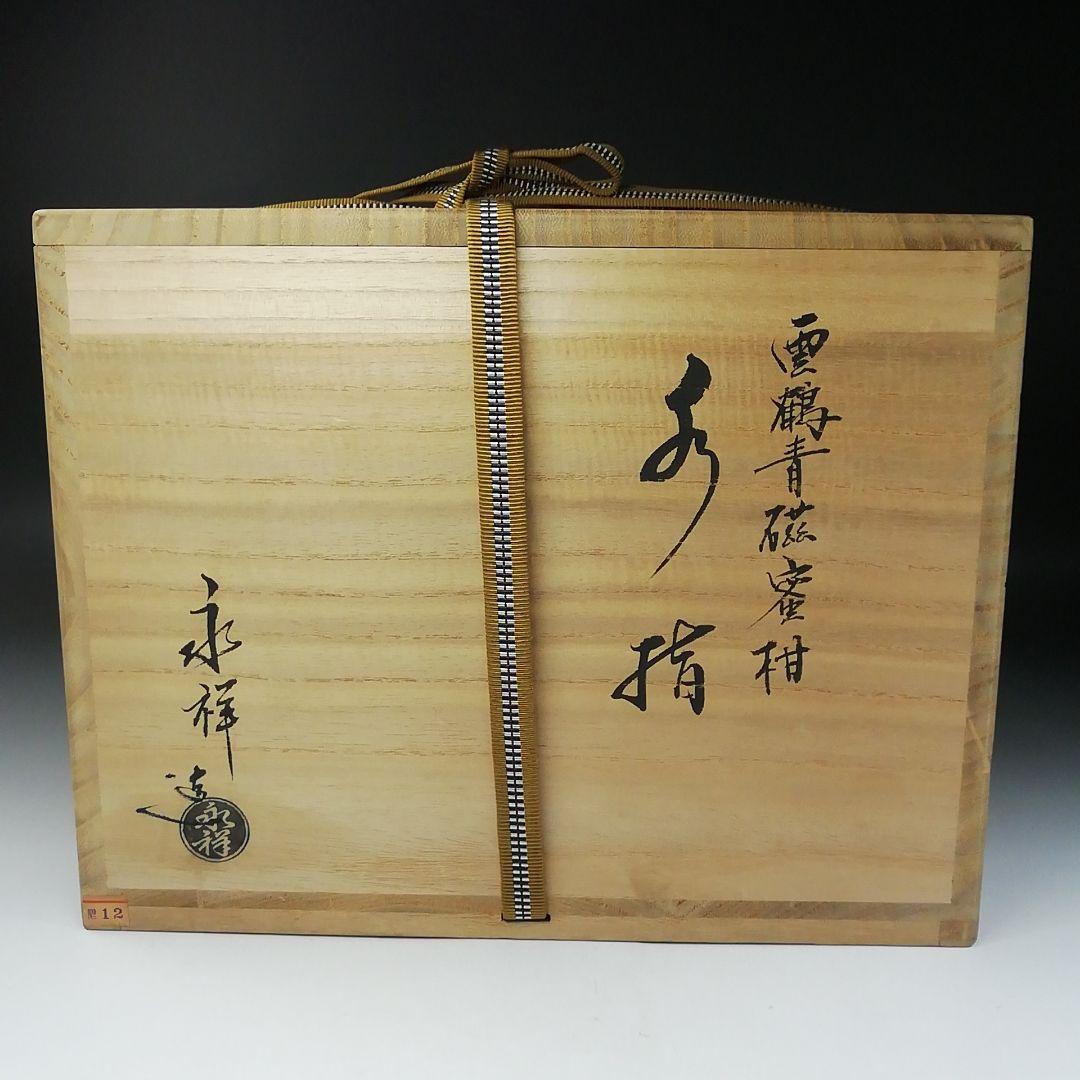 雲鶴青磁蜜柑
水指
永祥造
永祥
12